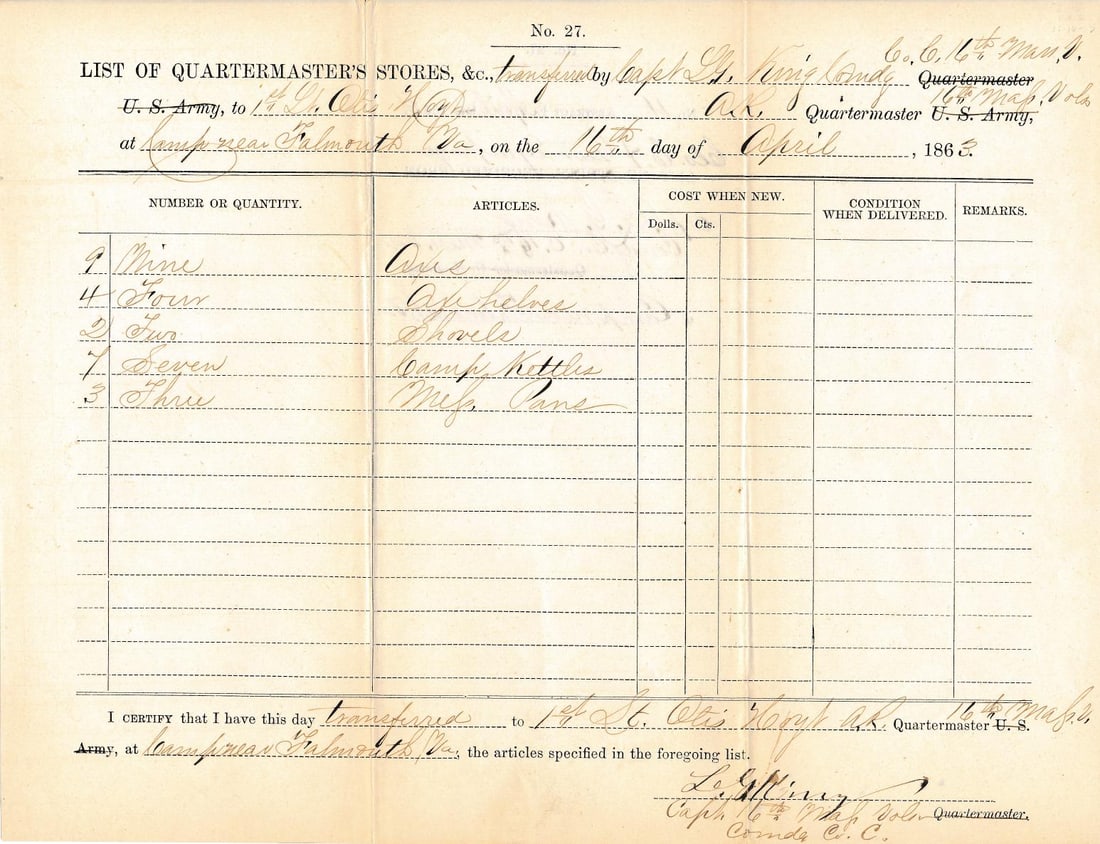 No. 27.
Co. C. 16th Mass. V.
LIST OF QUARTERMASTER'S STORES, &c., transferred by Capt L.G. King Comdg Quartermaster
16th Mass. Vols
U. S. Army, to 1st Lt. Otis Hoyt A.R. Quartermaster U. S. Army,
at Camp near Falmouth Va, on the 16th day of April, 1863.
NUMBER OR QUANTITY. ARTICLES. COST WHEN NEW. CONDITION WHEN DELIVERED. REMARKS.
Dolls. Cts.
9 Nine Axes
4 Four Axe helves
2 Two Shovels
7 Seven Camp Kettles
3 Three Mess Pans
I CERTIFY that I have this day transferred to 1st Lt. Otis Hoyt A.R. Quartermaster U. S. 16th Mass. V.
Army, at Camp near Falmouth, Va, the articles specified in the foregoing list.
King
Capt. 16th Mass Vols Quartermaster.
Comdg Co. C.